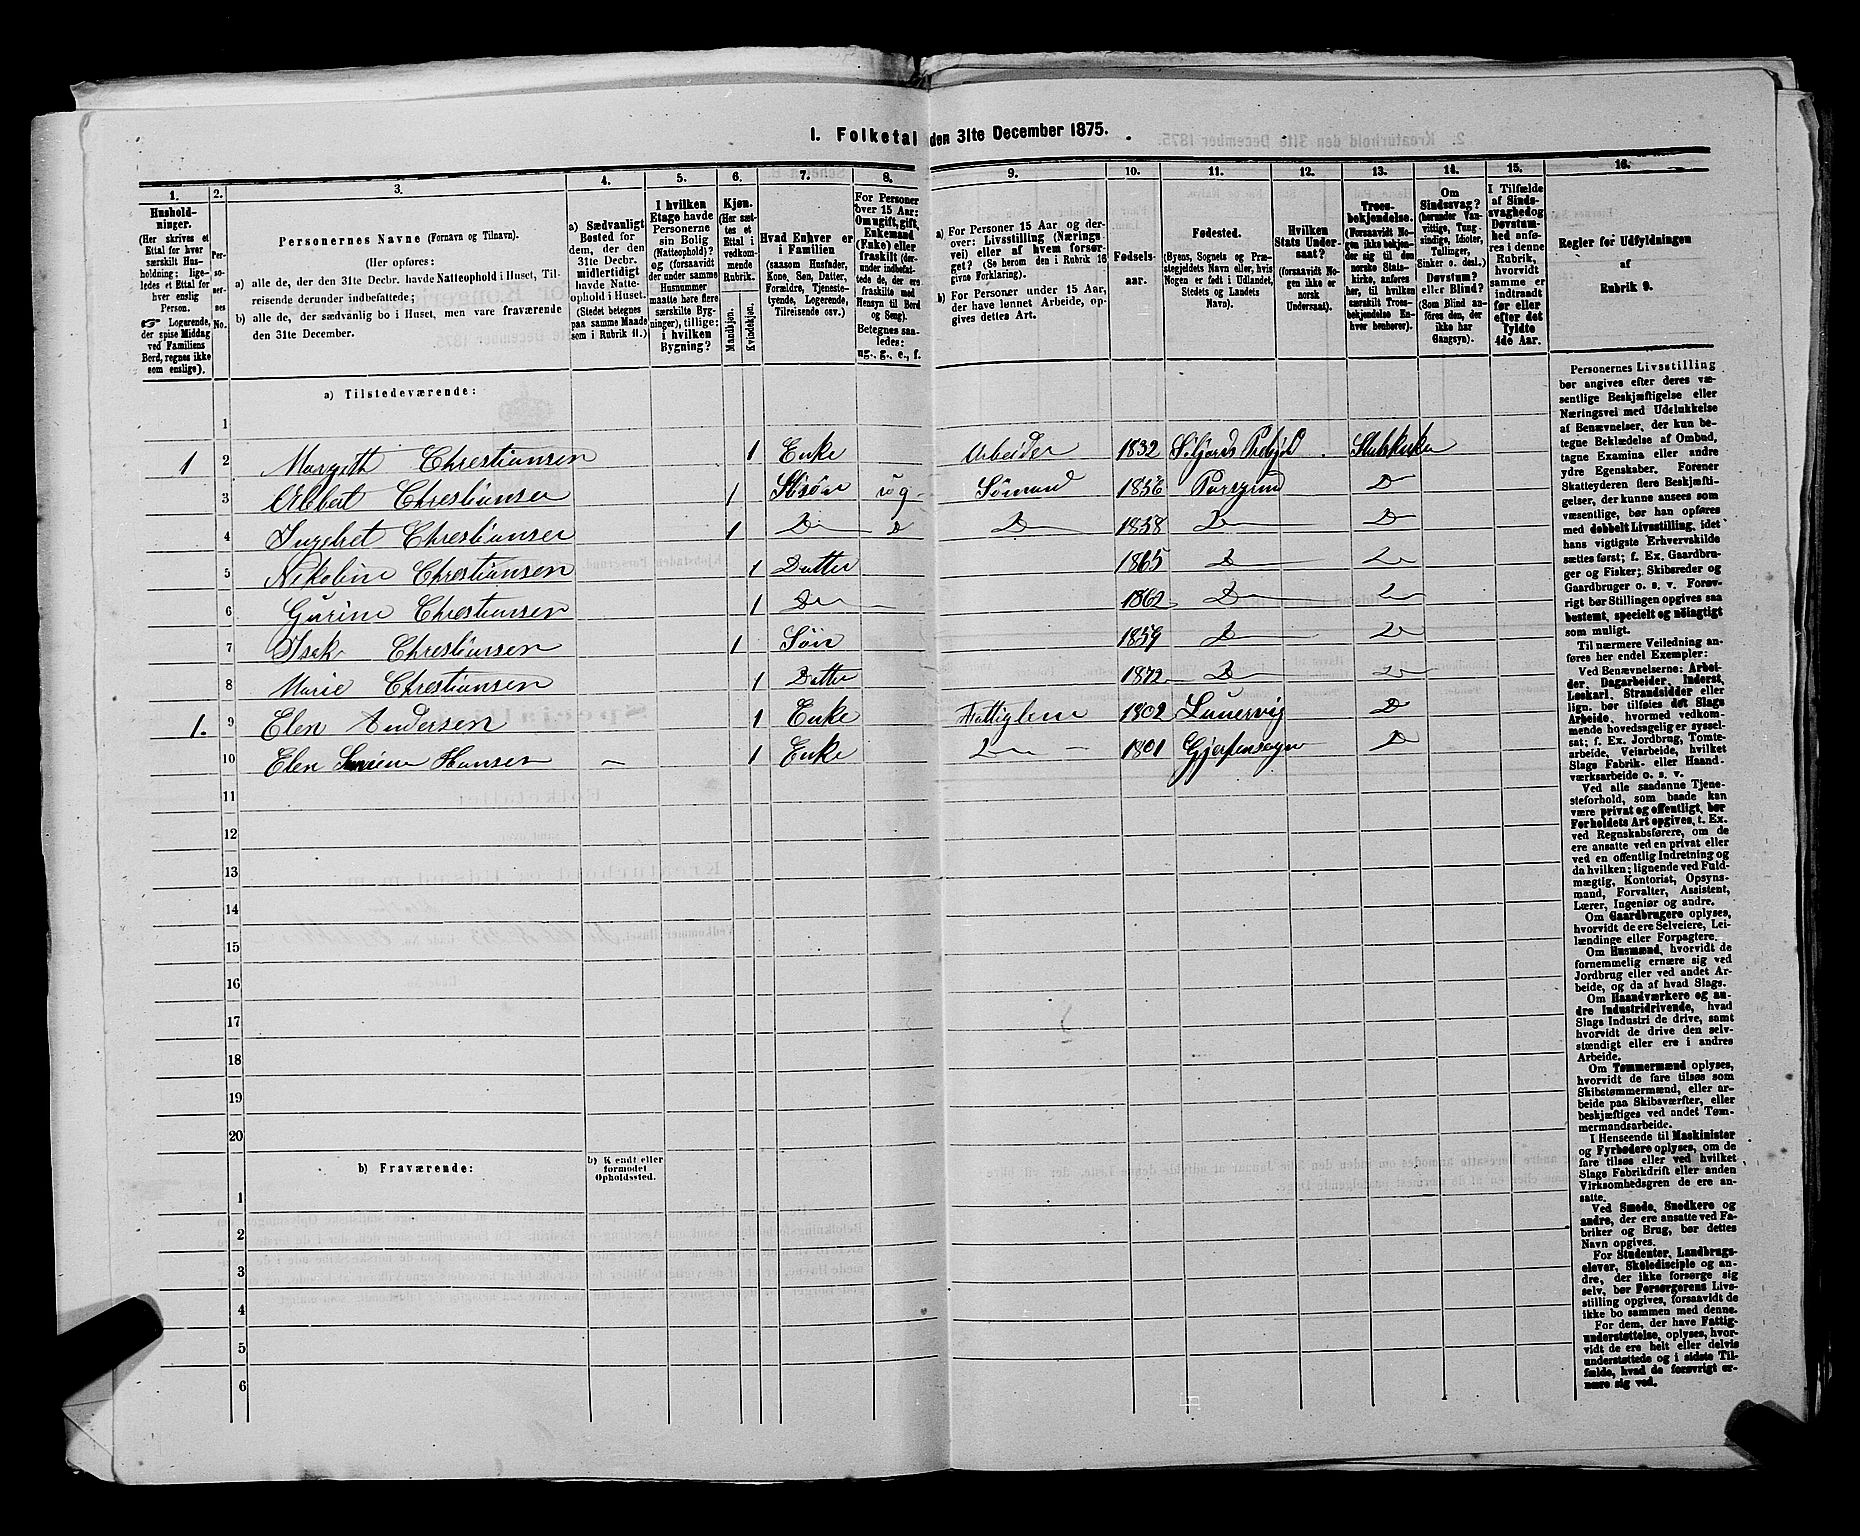 1. Folketal den 31te December 1875.
1.
Hushold-
ninger.
(Her skrives et
Ettal for hver
særskilt Hus-
holdning; lige-
ledes et Ettal for
hver enslig
Person.
☞ Logerende,
der spise Middag
ved Familiens
Bord, regnes ikke
som enslige).
2.
Per-
so-
ner-
nes
No.
3.
Personernes Navne (Fornavn og Tilnavn).
(Her opføres:
a) alle de, der den 31te Decbr. havde Natteophold i Huset, Til-
reisende derunder indbefattede;
b) alle de, der sædvanlig bo i Huset, men vare fraværende
den 31te December.
4.
a) Sædvanligt
Bosted for
dem, der den
31te Decbr.
midlertidigt
havde Natte-
ophold i Huset.
(Stedet betegnes
paa samme Maade
som i Rubrik 11.)
5.
I hvilken
Etage havde
Personerne
sin Bolig
(Natteophold)?
og (forsaavidt
der under samme
Husnummer
maatte høre flere
særskilte Byg-
ninger), tillige:
i hvilken
Bygning?
6.
Kjøn.
(Her sæt-
tes et
Ettal i
vedkom-
mende
Rubrik.
Mandkjøn.
Kvindekjøn.
7.
Hvad Enhver er
i Familien
(saasom Husfader,
Kone, Søn, Datter,
Forældre, Tjeneste-
tyende, Logerende,
Tilreisende osv.)
8.
For Personer
over 15 Aar:
Om ugift, gift,
Enkemand
(Enke) eller
fraskilt (der-
under indbefat-
tede de, der ere
fraskilte med
Hensyn til Bord
og Seng).
Betegnes saa-
ledes:
ug., g., e., f.
9.
a) For Personer 15 Aar og der-
over: Livsstilling (Nærings-
vei) eller af hvem forsør-
get? (Se herom den i Rubrik 16
givne Forklaring).
b) For Personer under 15 Aar,
der have lønnet Arbeide, op-
gives dettes Art.
10.
Fødsels-
aar.
11.
Fødested.
(Byens, Sognets og Præ-
stegjeldets Navn eller, hvis
Nogen er født i Udlandet,
Stedets og Landets
Navn).
12.
Hvilken
Stats Under-
saat?
(forsaavidt No-
gen ikke er
norsk
Undersaat).
13.
Troes-
bekjendelse.
(Forsaavidt No-
gen ikke beken-
der sig til den
norske Stats-
kirke, anføres
her, til hvilken
særskilt Troes-
bekjendelse En-
hver henhører).
14.
Om
Sindssvag?
(herunder Van-
vittige, Tung-
sindige, Idioter,
Tullinger,
Sinker o. desl.)
Døvstum?
eller Blind?
(Som Blind an-
føres den, der
ikke har
Gangsyn).
15.
I Tilfælde
af Sinds-
svaghed og
Døvstum-
hed anfø-
res i denne
Rubrik,
hvorvidt
samme er
indtraadt
før eller
efter det
fyldte
4de Aar.
16.
Regler for Udfyldningen
af
Rubrik 9.
a) Tilstedeværende:
1
1 2 Margeth Chrestiansen 1 Enke Arbeider 1832 Statskirke
3 Albert Chrestiansen 1 ug Sømand 1856 Porsgrund D
4 Ingebret Chrestiansen 1 D D D 1858 D D
5 Nikoline Chrestiansen 1 Datter 1865 D D
6 Gurine Chrestiansen 1 D 1862 D D
7 Isak Chrestiansen 1 Søn 1859 D D
8 Marie Chrestiansen 1 Datter 1872 D D
1. 9 Elen Andersen 1 Enke Fattiglem 1802 D
10 Elen Hansen 1 Enke D 1801 Gjerpensogn D
11
12
13
14
15
16
17
18
19
20
b) Fraværende:
b) Kendt eller
formodet
Opholdssted.
1
2
3
4
5
6
Personernes Livsstilling
bør angives efter deres væ-
sentlige Beskjæftigelse eller
Næringsvei med Udelukkelse
af Benævnelser, der kun be-
tegne Beklædelse af Ombud,
tagne Examina eller andre
ydre Egenskaber. Forener
Skatteyderen flere Beskjæfti-
gelser, der kunne ansees som
væsentlige, bør han opføres
med dobbelt Livsstilling, idet
hans vigtigste Erhvervskilde
sættes først; f. Ex. Gaardbru-
ger og Fisker; Skibsreder og
Gaardbruger o. s. v. Forøv-
rigt bør Stillingen opgives saa
bestemt, specielt og nøiagtigt
som muligt.
Til nærmere Veiledning an-
føres her endel Exempler:
Ved Benævnelserne: Arbei-
der, Dagarbeider, Inderst,
Løskarl, Strandsidder eller
lign. bør tilføies det Slags
Arbeide, hvormed vedkom-
mende hovedsagelig er syssel-
sat; f. Ex. Jordbrug, Tomte-
arbeide, Veiarbeide, hvilket
Slags Fabrik- eller Haand-
værksarbeide o. s. v.
Ved alle saadanne Tjene-
steforhold, som baade kan
være privat og offentligt, bør
Forholdets Art opgives, t. Ex.
ved Regnskabsførere, om de
ere ansatte ved en privat eller
ved en offentlig Indretning og
da hvilken; lignende ved Fuld-
mægtig, Kontorist, Opsyns-
mand, Forvalter, Assistent,
Lærer, Ingeniør og andre.
Om Gaardbrugere oplyses,
hvorvidt de ere Selveiere, Lei-
lændinge eller Forpagtere.
Om Husmænd, hvorvidt de
fornemmelig ernære sig ved
Jordbrug eller ved andet Ar-
beide, og da af hvad Slags.
Om Haandværkere og an-
dre Industridrivende, hvad
Slags Industri de drive, samt
hvorvidt de drive den selv-
stændigt eller ere i andres
Arbeide.
Om Tømmermænd oplyses,
hvorvidt de fare tilsøs som
Skibstømmermænd, eller ar-
beide paa Skibsværfter, eller
beskjæftiges ved andet Tøm-
mermandsarbeide.
I Henseende til Maskinister
og Fyrbødere oplyses, om de
fare tilsøs eller ved hvilket
Slags Fabrikdrift eller anden
Virksomhedsgren de ere an-
satte.
Ved Smede, Snedkere og
andre, der ere ansatte ved Fa-
briker og Brug, bør dettes
Navn opgives.
For Studenter, Landbrugs-
elever, Skoledisciple og an-
dre, der ikke forsørge sig
selv, bør Forsørgerens Livs-
stilling opgives, forsaavidt de
ikke bo sammen med denne.
For dem, der have Fattig-
understøttelse, oplyses, hvor-
vidt de ere helt eller delvis
understøttede og i sidste Til-
fælde, hvad de forøvrigt er-
nære sig ved.